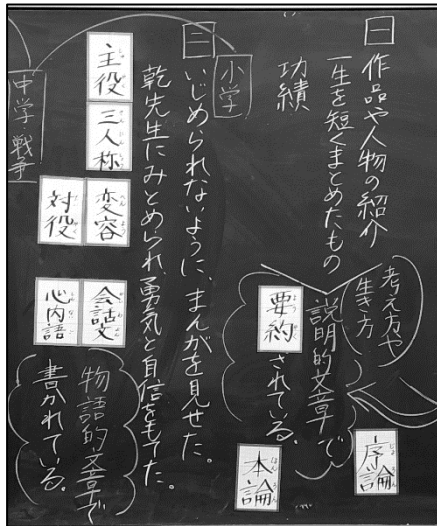 一
作品や人物の紹介
一生を短くまとめたもの
功績
考え方や
生き方
説明的文章で
要約されている。
序論
本論
二
小学
いじめられないように、まんがを見せた。
乾先生にみとめられ、勇気と自信をもてた。
主役
三人称
変容
対役
会話文
心内語
物語的文章で
書かれている。
中学 戦争